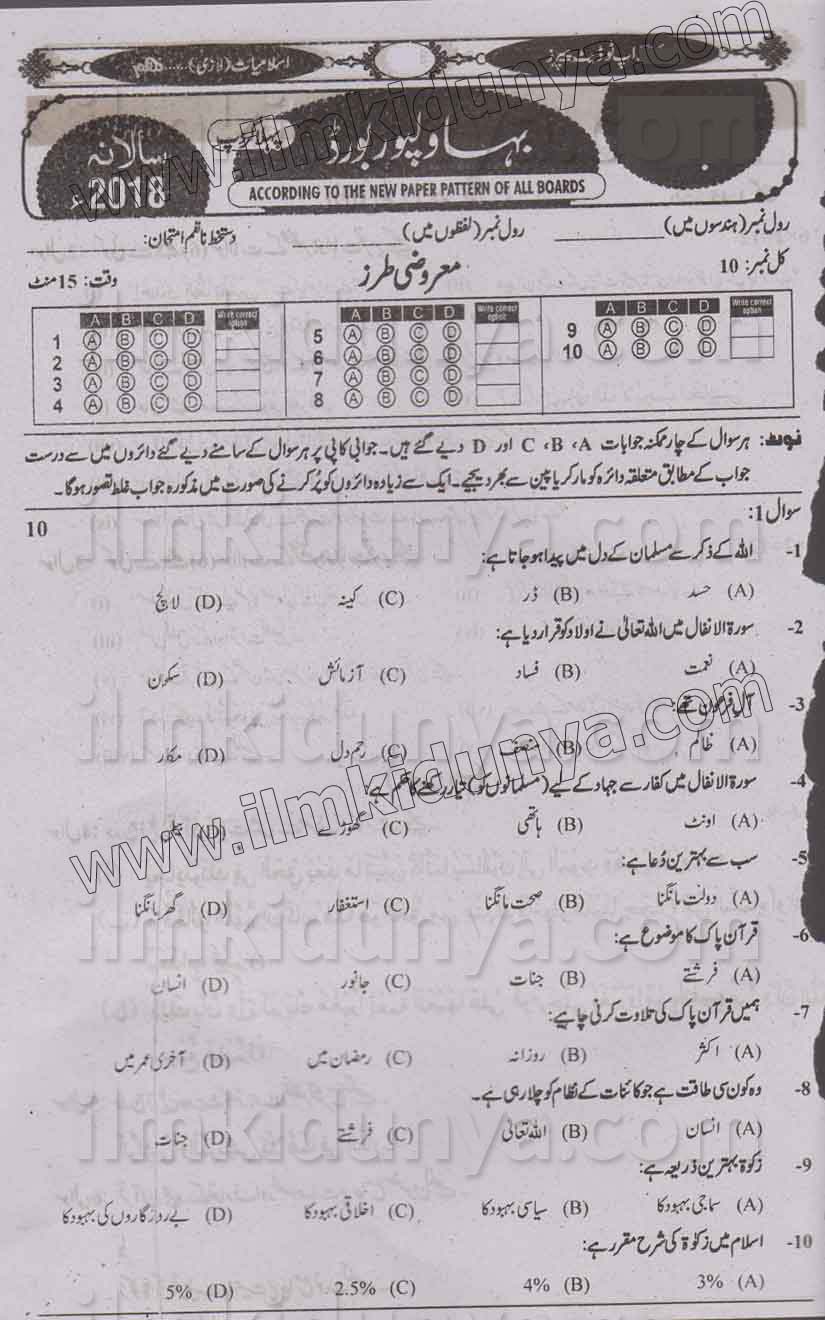 اسلامیات (لازمی)......
سالانہ
2018ء
بہاولپور بورڈ
پہلا گروپ
ACCORDING TO THE NEW PAPER PATTERN OF ALL BOARDS
رول نمبر (ہندسوں میں) ________ رول نمبر (لفظوں میں) ________ دستخط ناظم امتحان:
کل نمبر: 10 معروضی طرز وقت: 15 منٹ
A B C D Write correct option A B C D Write correct option A B C D Write correct option
1 A B C D 5 A B C D 9 A B C D
2 A B C D 6 A B C D 10 A B C D
3 A B C D 7 A B C D
4 A B C D 8 A B C D
نوٹ: ہر سوال کے چار ممکنہ جوابات A، B، C اور D دیے گئے ہیں۔ جوابی کاپی پر ہر سوال کے سامنے دیے گئے دائروں میں سے درست
جواب کے مطابق متعلقہ دائرہ کو مارکر یا پین سے بھر دیجیے۔ ایک سے زیادہ دائروں کو پُر کرنے کی صورت میں مذکورہ جواب غلط تصور ہوگا۔
سوال 1: 10
1- اللہ کے ذکر سے مسلمان کے دل میں پیدا ہو جاتا ہے:
(A) حسد (B) ڈر (C) کینہ (D) لالچ
2- سورۃ الانفال میں اللہ تعالیٰ نے اولاد کو قرار دیا ہے:
(A) نعمت (B) فساد (C) آزمائش (D) سکون
3- آلِ فرعون تھے:
(A) ظالم (B) منصف (C) رحم دل (D) مکار
4- سورۃ الانفال میں کفار سے جہاد کے لیے (مسلمانوں کو) تیار رکھنے کا حکم ہے:
(A) اونٹ (B) ہاتھی (C) گھوڑے (D) بیل
5- سب سے بہترین دُعا ہے:
(A) دولت مانگنا (B) صحت مانگنا (C) استغفار (D) گھر مانگنا
6- قرآن پاک کا موضوع ہے:
(A) فرشتے (B) جنات (C) جانور (D) انسان
7- ہمیں قرآن پاک کی تلاوت کرنی چاہیے:
(A) اکثر (B) روزانہ (C) رمضان میں (D) آخری عمر میں
8- وہ کون سی طاقت ہے جو کائنات کے نظام کو چلا رہی ہے۔
(A) انسان (B) اللہ تعالیٰ (C) فرشتے (D) جنات
9- زکوٰۃ بہترین ذریعہ ہے:
(A) سماجی بہبود کا (B) سیاسی بہبود کا (C) اخلاقی بہبود کا (D) بے روزگاروں کی بہبود کا
10- اسلام میں زکوٰۃ کی شرح مقرر ہے:
(A) 3% (B) 4% (C) 2.5% (D) 5%
www.ilmkidunya.com
www.ilmkidunya.com
ilmkidunya.com
ilmkidunya.com
ilmkidunya.com
ilmkidunya.com
ilmkidunya.com
ilmkidunya.com